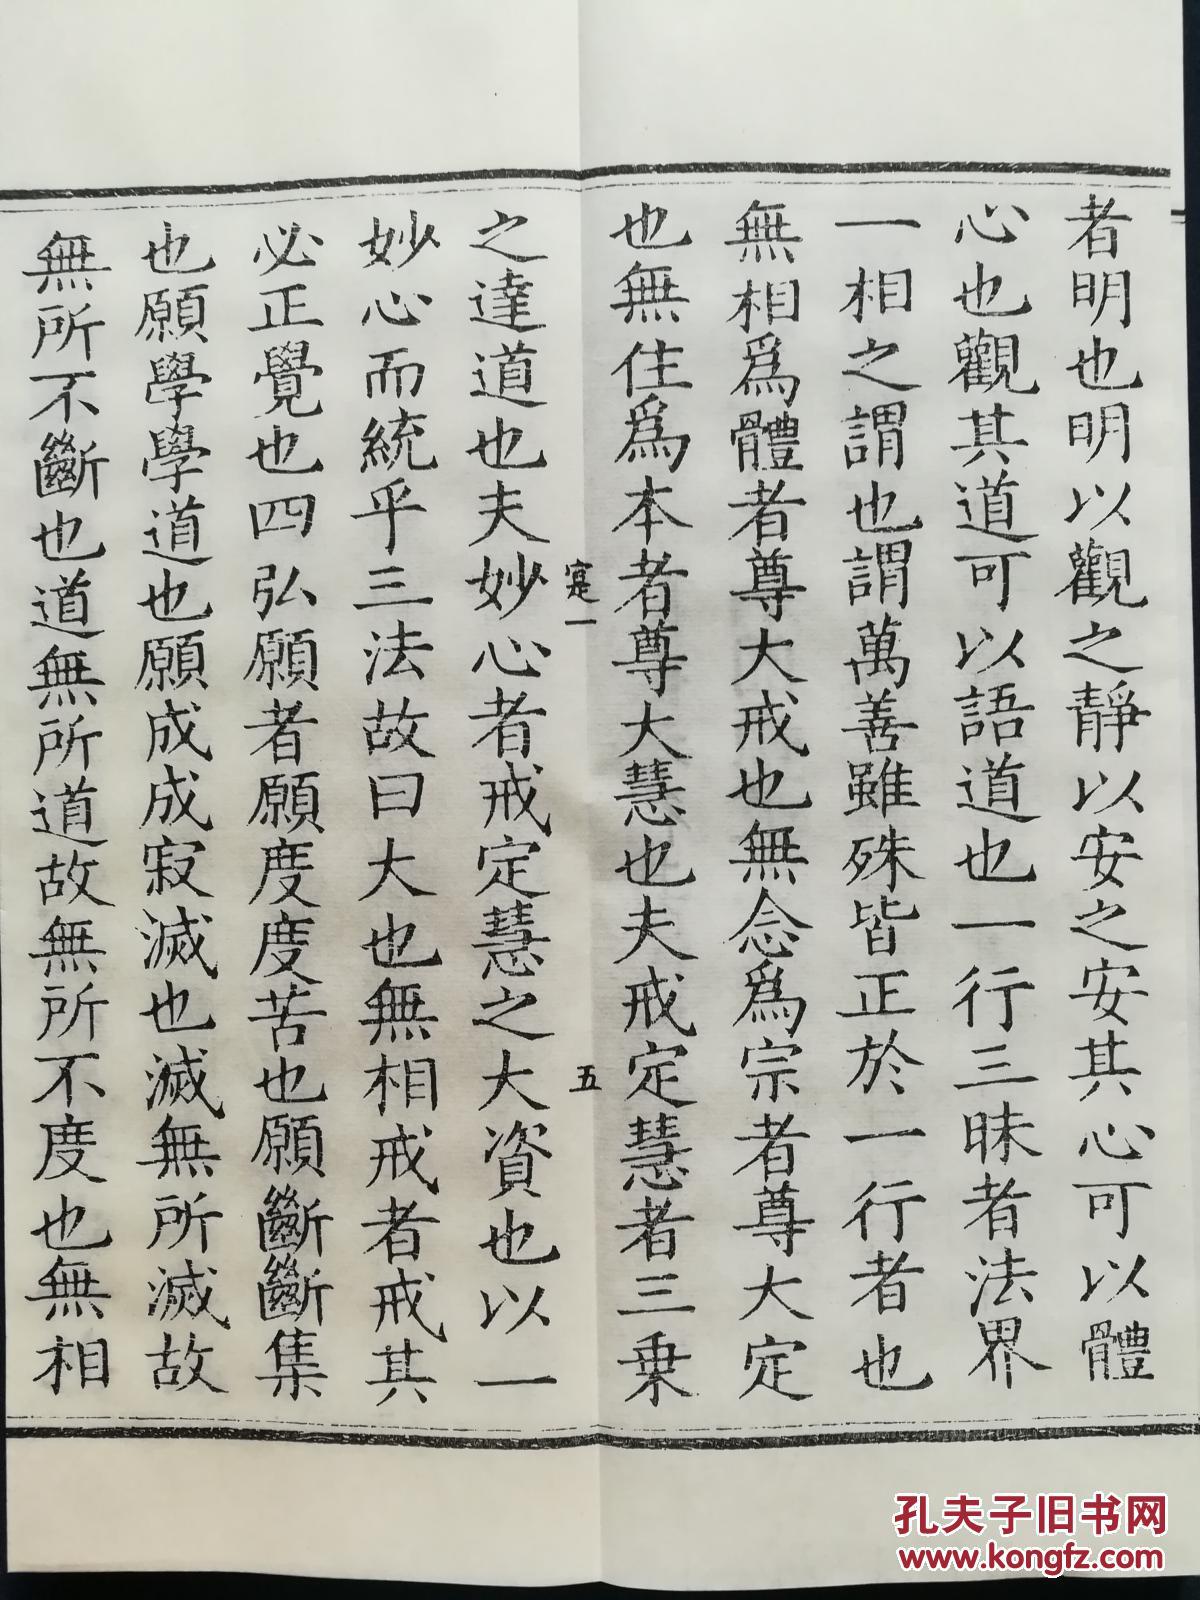 者明也明以觀之靜以安之安其心可以體
心也觀其道可以語道也一行三昧者法界
一相之謂也謂萬善雖殊皆正於一行者也
無相爲體者尊大戒也無念爲宗者尊大定
也無住爲本者尊大慧也夫戒定慧者三乗
之達道也夫妙心者戒定慧之大資也以一
妙心而統乎三法故曰大也無相戒者戒其
必正覺也四弘願者願度度苦也願斷斷集
也願學學道也願成成寂滅也滅無所滅故
無所不斷也道無所道故無所不度也無相
寔一
五
孔夫子旧书网
www.kongfz.com